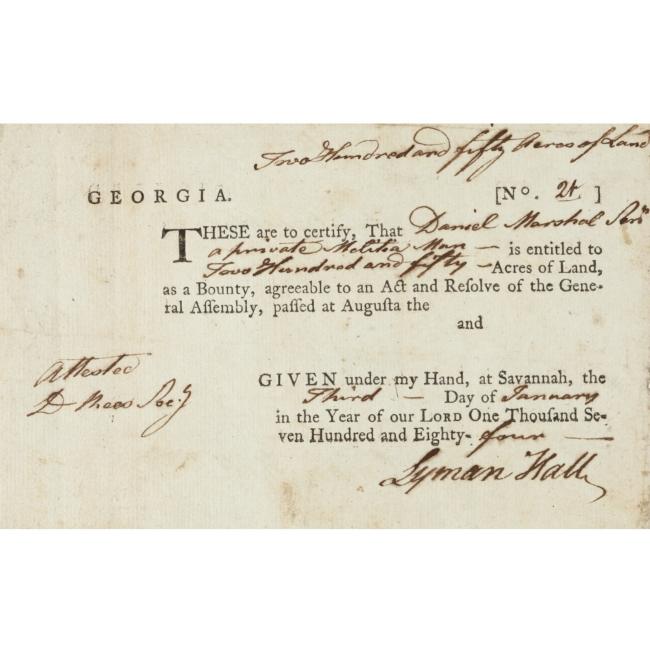 Two Hundred and fifty Acres of Land
GEORGIA. [No. 24 ]
THESE are to certify, That Daniel Marshal Senr
a private Militia Man — is entitled to
Two Hundred and fifty — Acres of Land,
as a Bounty, agreeable to an Act and Reſolve of the Gene-
ral Aſſembly, paſſed at Auguſta the
and
Attested
D Rees Secy
GIVEN under my Hand, at Savannah, the
Third — Day of January
in the Year of our LORD One Thouſand Se-
ven Hundred and Eighty- four —
Lyman Hall